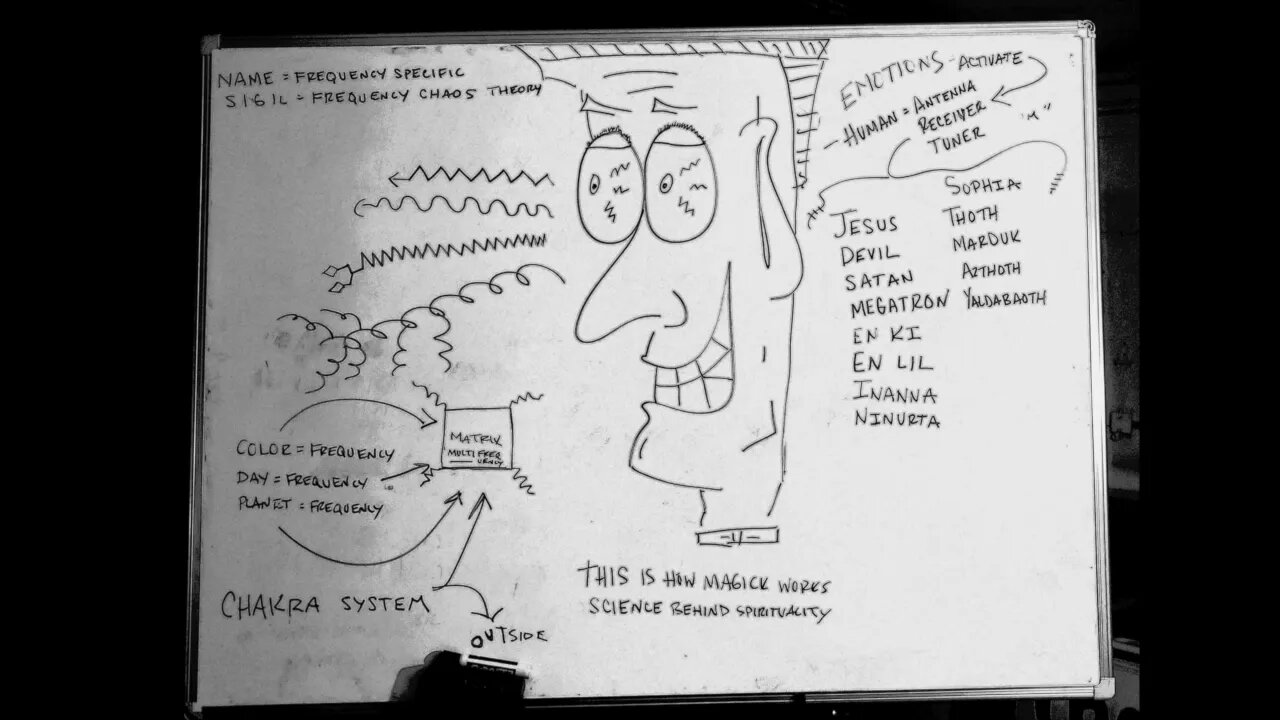 NAME = FREQUENCY SPECIFIC
SIGIL = FREQUENCY CHAOS THEORY
EMOTIONS - ACTIVATE
- HUMAN = ANTENNA
RECEIVER
TUNER
"M"
JESUS
DEVIL
SATAN
MEGATRON
EN KI
EN LIL
INANNA
NINURTA
SOPHIA
THOTH
MARDUK
AZTHOTH
YALDABAOTH
MATRIX
MULTI FREQ
UENCY
COLOR = FREQUENCY
DAY = FREQUENCY
PLANET = FREQUENCY
CHAKRA SYSTEM
OUTSIDE
THIS IS HOW MAGICK WORKS
SCIENCE BEHIND SPIRITUALITY